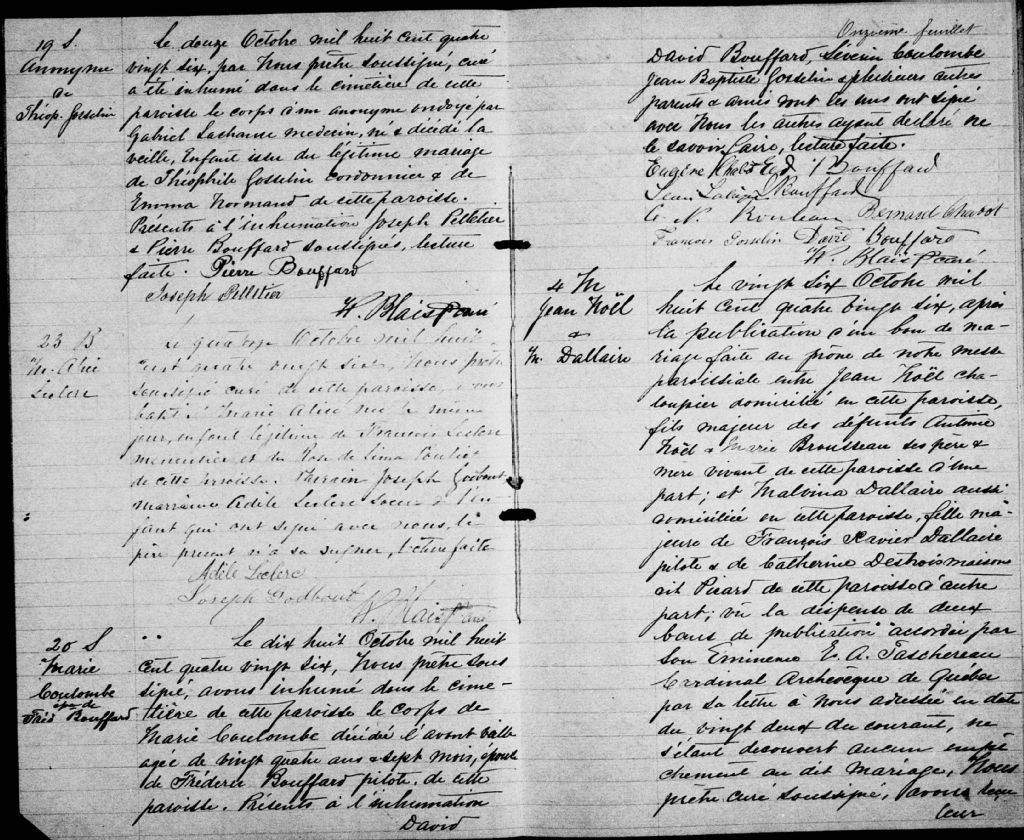 19 S.
Anonyme
de
Théop. Gosselin
Le douze Octobre mil huit cent quatre
vingt six, par Nous prêtre soussigné, curé
a été inhumé dans le cimetière de cette
paroisse le corps d'un anonyme ondoyé par
Gabriel Lachance medecin, né & décédé la
veille, Enfant issu du légitime mariage
de Théophile Gosselin cordonnier & de
Emma Normand de cette paroisse.
Présents à l'inhumation Joseph Pelletier
& Pierre Bouffard soussignés, lecture
faite. Pierre Bouffard
Joseph Pelletier
W. Blais Ptre curé
23 B
M. Alice
Leclerc
Le quatorze Octobre mil huit
cent quatre vingt six, Nous prêtre
soussigné curé de cette paroisse, avons
batisé Marie Alice née le même
jour, enfant légitime de François Leclerc
menuisier et de Rose de Lima
de cette paroisse. Parrain Joseph Godbout
marraine Adèle Leclerc soeur de l'en
fant qui ont signé avec nous, le
père présent n'a su signer, lecture faite
Adèle Leclerc
Joseph Godbout
W. Blais Ptre curé
20 S
Marie
Coulombe
épse de
Fréd Bouffard
Le dix huit Octobre mil huit
cent quatre vingt six, Nous prêtre sous
signé, avons inhumé dans le cime-
tière de cette paroisse le corps de
Marie Coulombe décédée l'avant veille
agée de vingt quatre ans & sept mois, épouse
de Fréderic Bouffard pilote de cette
paroisse. Présents à l'inhumation
David
Onzième feuillet
David Bouffard, Sévérin Coulombe
Jean Baptiste Gosselin & plusieurs autres
parents & amis dont les uns ont signé
avec Nous les autres ayant déclaré ne
le savoir faire, lecture faite.
Eugène Chabot Bouffard
Jean Bouffard
N. Rouleau Bernard Chabot
François Gosselin David Bouffard
W. Blais Ptre curé
4 M
Jean Noël
&
M. Dallaire
Le vingt six Octobre mil
huit cent quatre vingt six, après
la publication d'un ban de ma-
riage faite au prône de notre messe
paroissiale entre Jean Noël cha-
loupier domicilié en cette paroisse,
fils majeur des défunts Antoine
Noël & Marie Brousseau ses père &
mère vivant de cette paroisse d'une
part; et Malvina Dallaire aussi
domiciliée en cette paroisse, fille ma-
jeure de François Xavier Dallaire
pilote & de Catherine Destroismaisons
dit Picard de cette paroisse d'autre
part; vu la dispense de deux
bans de publication accordée par
Son Eminence E. A. Taschereau
Cardinal Archevêque de Québec
par sa lettre à Nous adressée en date
du vingt deux du courant, ne
s'étant découvert aucun empê
chement au dit mariage, Nous
prêtre curé soussigné, avons
leur